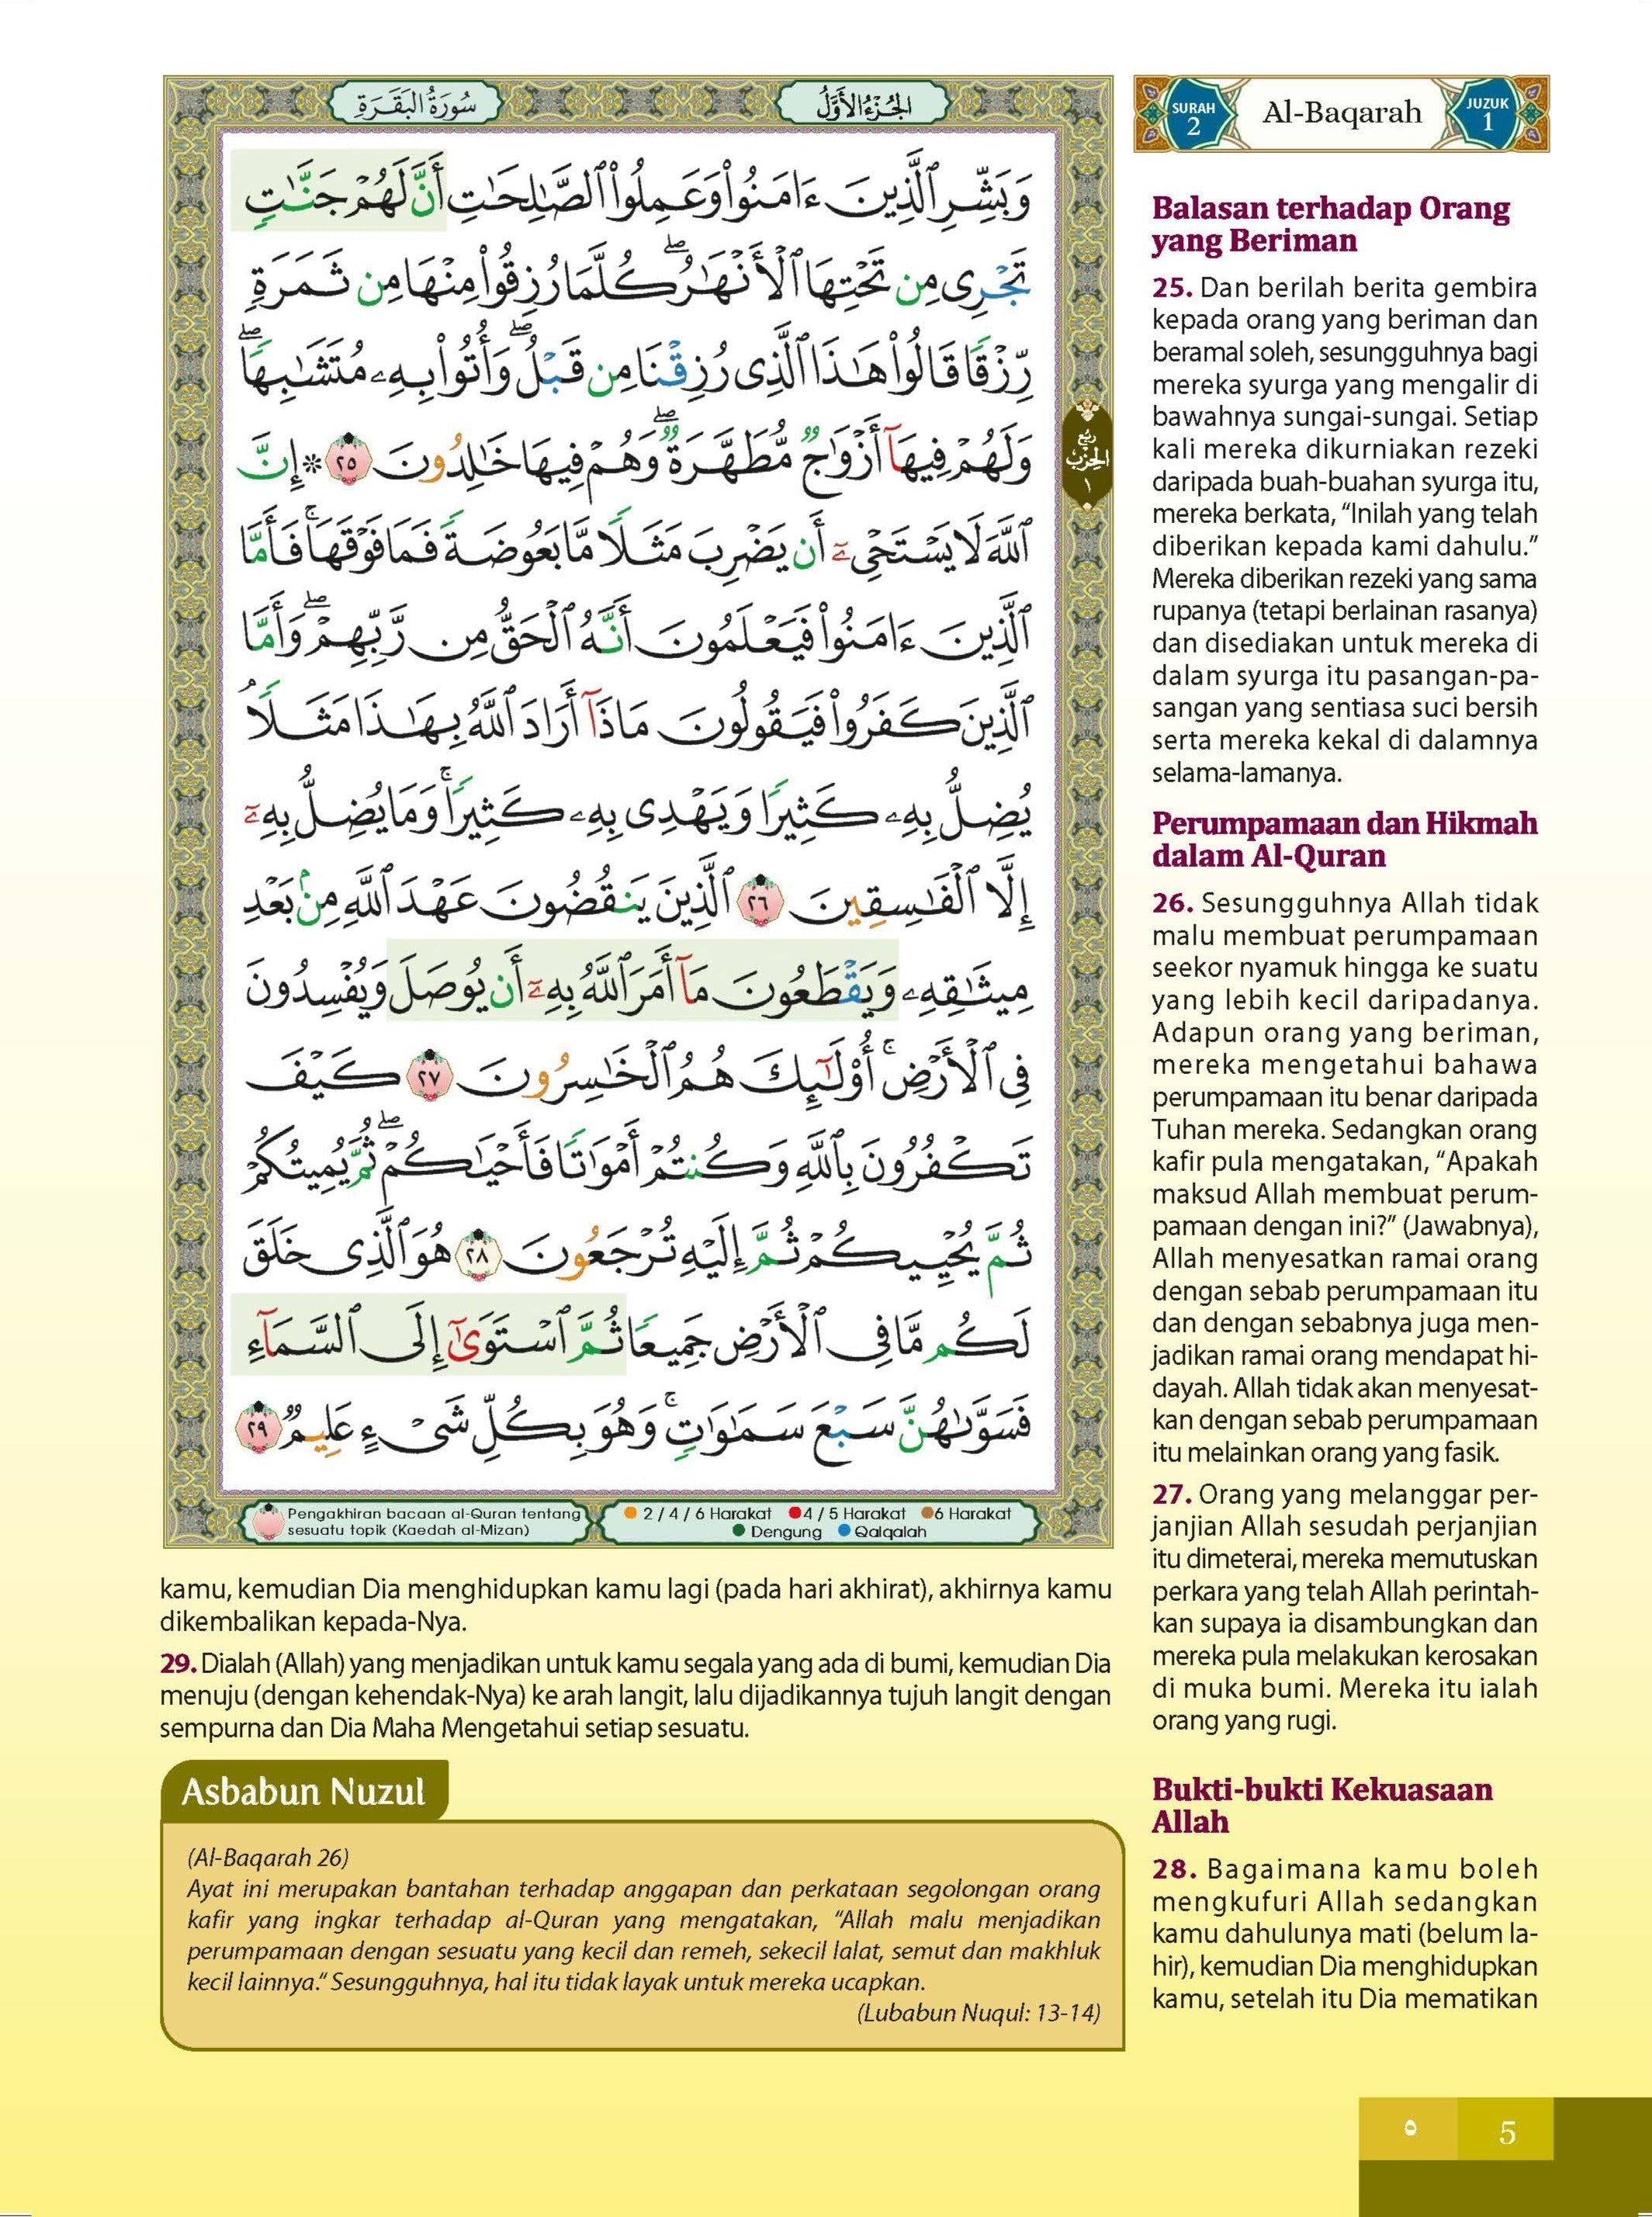 سُورَةُ البَقَرَةِ
الجُزْءُ الأَوَّلُ
SURAH 2
Al-Baqarah
JUZUK 1
وَبَشِّرِ ٱلَّذِينَ ءَامَنُوا۟ وَعَمِلُوا۟ ٱلصَّـٰلِحَـٰتِ أَنَّ لَهُمْ جَنَّـٰتٍ
تَجْرِى مِن تَحْتِهَا ٱلْأَنْهَـٰرُ ۖ كُلَّمَا رُزِقُوا۟ مِنْهَا مِن ثَمَرَةٍ
رِّزْقًا قَالُوا۟ هَـٰذَا ٱلَّذِى رُزِقْنَا مِن قَبْلُ ۖ وَأُتُوا۟ بِهِۦ مُتَشَـٰبِهًا ۖ
وَلَهُمْ فِيهَآ أَزْوَٰجٌ مُّطَهَّرَةٌ ۖ وَهُمْ فِيهَا خَـٰلِدُونَ ٢٥ ۞ إِنَّ
ٱللَّهَ لَا يَسْتَحْىِۦٓ أَن يَضْرِبَ مَثَلًا مَّا بَعُوضَةً فَمَا فَوْقَهَا ۚ فَأَمَّا
ٱلَّذِينَ ءَامَنُوا۟ فَيَعْلَمُونَ أَنَّهُ ٱلْحَقُّ مِن رَّبِّهِمْ ۖ وَأَمَّا
ٱلَّذِينَ كَفَرُوا۟ فَيَقُولُونَ مَاذَآ أَرَادَ ٱللَّهُ بِهَـٰذَا مَثَلًا ۘ
يُضِلُّ بِهِۦ كَثِيرًا وَيَهْدِى بِهِۦ كَثِيرًا ۚ وَمَا يُضِلُّ بِهِۦٓ
إِلَّا ٱلْفَـٰسِقِينَ ٢٦ ٱلَّذِينَ يَنقُضُونَ عَهْدَ ٱللَّهِ مِنۢ بَعْدِ
مِيثَـٰقِهِۦ وَيَقْطَعُونَ مَآ أَمَرَ ٱللَّهُ بِهِۦٓ أَن يُوصَلَ وَيُفْسِدُونَ
فِى ٱلْأَرْضِ ۚ أُو۟لَـٰٓئِكَ هُمُ ٱلْخَـٰسِرُونَ ٢٧ كَيْفَ
تَكْفُرُونَ بِٱللَّهِ وَكُنتُمْ أَمْوَٰتًا فَأَحْيَـٰكُمْ ۖ ثُمَّ يُمِيتُكُمْ
ثُمَّ يُحْيِيكُمْ ثُمَّ إِلَيْهِ تُرْجَعُونَ ٢٨ هُوَ ٱلَّذِى خَلَقَ
لَكُم مَّا فِى ٱلْأَرْضِ جَمِيعًا ثُمَّ ٱسْتَوَىٰٓ إِلَى ٱلسَّمَآءِ
فَسَوَّىٰهُنَّ سَبْعَ سَمَـٰوَٰتٍ ۚ وَهُوَ بِكُلِّ شَىْءٍ عَلِيمٌ ٢٩
ربع
الحزب
١
Pengakhiran bacaan al-Quran tentang
sesuatu topik (Kaedah al-Mizan)
2 / 4 / 6 Harakat 4 / 5 Harakat 6 Harakat
Dengung Qalqalah
Balasan terhadap Orang
yang Beriman
25. Dan berilah berita gembira
kepada orang yang beriman dan
beramal soleh, sesungguhnya bagi
mereka syurga yang mengalir di
bawahnya sungai-sungai. Setiap
kali mereka dikurniakan rezeki
daripada buah-buahan syurga itu,
mereka berkata, “Inilah yang telah
diberikan kepada kami dahulu.”
Mereka diberikan rezeki yang sama
rupanya (tetapi berlainan rasanya)
dan disediakan untuk mereka di
dalam syurga itu pasangan-pa-
sangan yang sentiasa suci bersih
serta mereka kekal di dalamnya
selama-lamanya.
Perumpamaan dan Hikmah
dalam Al-Quran
26. Sesungguhnya Allah tidak
malu membuat perumpamaan
seekor nyamuk hingga ke suatu
yang lebih kecil daripadanya.
Adapun orang yang beriman,
mereka mengetahui bahawa
perumpamaan itu benar daripada
Tuhan mereka. Sedangkan orang
kafir pula mengatakan, “Apakah
maksud Allah membuat perum-
pamaan dengan ini?” (Jawabnya),
Allah menyesatkan ramai orang
dengan sebab perumpamaan itu
dan dengan sebabnya juga men-
jadikan ramai orang mendapat hi-
dayah. Allah tidak akan menyesat-
kan dengan sebab perumpamaan
itu melainkan orang yang fasik.
27. Orang yang melanggar per-
janjian Allah sesudah perjanjian
itu dimeterai, mereka memutuskan
perkara yang telah Allah perintah-
kan supaya ia disambungkan dan
mereka pula melakukan kerosakan
di muka bumi. Mereka itu ialah
orang yang rugi.
Bukti-bukti Kekuasaan
Allah
28. Bagaimana kamu boleh
mengkufuri Allah sedangkan
kamu dahulunya mati (belum la-
hir), kemudian Dia menghidupkan
kamu, setelah itu Dia mematikan
kamu, kemudian Dia menghidupkan kamu lagi (pada hari akhirat), akhirnya kamu
dikembalikan kepada-Nya.
29. Dialah (Allah) yang menjadikan untuk kamu segala yang ada di bumi, kemudian Dia
menuju (dengan kehendak-Nya) ke arah langit, lalu dijadikannya tujuh langit dengan
sempurna dan Dia Maha Mengetahui setiap sesuatu.
Asbabun Nuzul
(Al-Baqarah 26)
Ayat ini merupakan bantahan terhadap anggapan dan perkataan segolongan orang
kafir yang ingkar terhadap al-Quran yang mengatakan, “Allah malu menjadikan
perumpamaan dengan sesuatu yang kecil dan remeh, sekecil lalat, semut dan makhluk
kecil lainnya.” Sesungguhnya, hal itu tidak layak untuk mereka ucapkan.
(Lubabun Nuqul: 13-14)
٥ 5